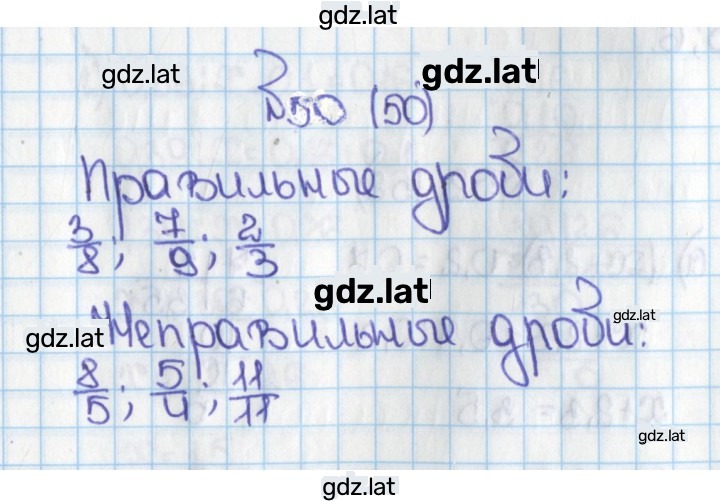 gdz.lat
gdz.lat gdz.lat
№50 (50)
Правильные дроби:
3/8; 7/9; 2/3
gdz.lat
gdz.lat
gdz.lat
Неправильные дроби:
8/5; 5/4; 11/11
gdz.lat
gdz.lat